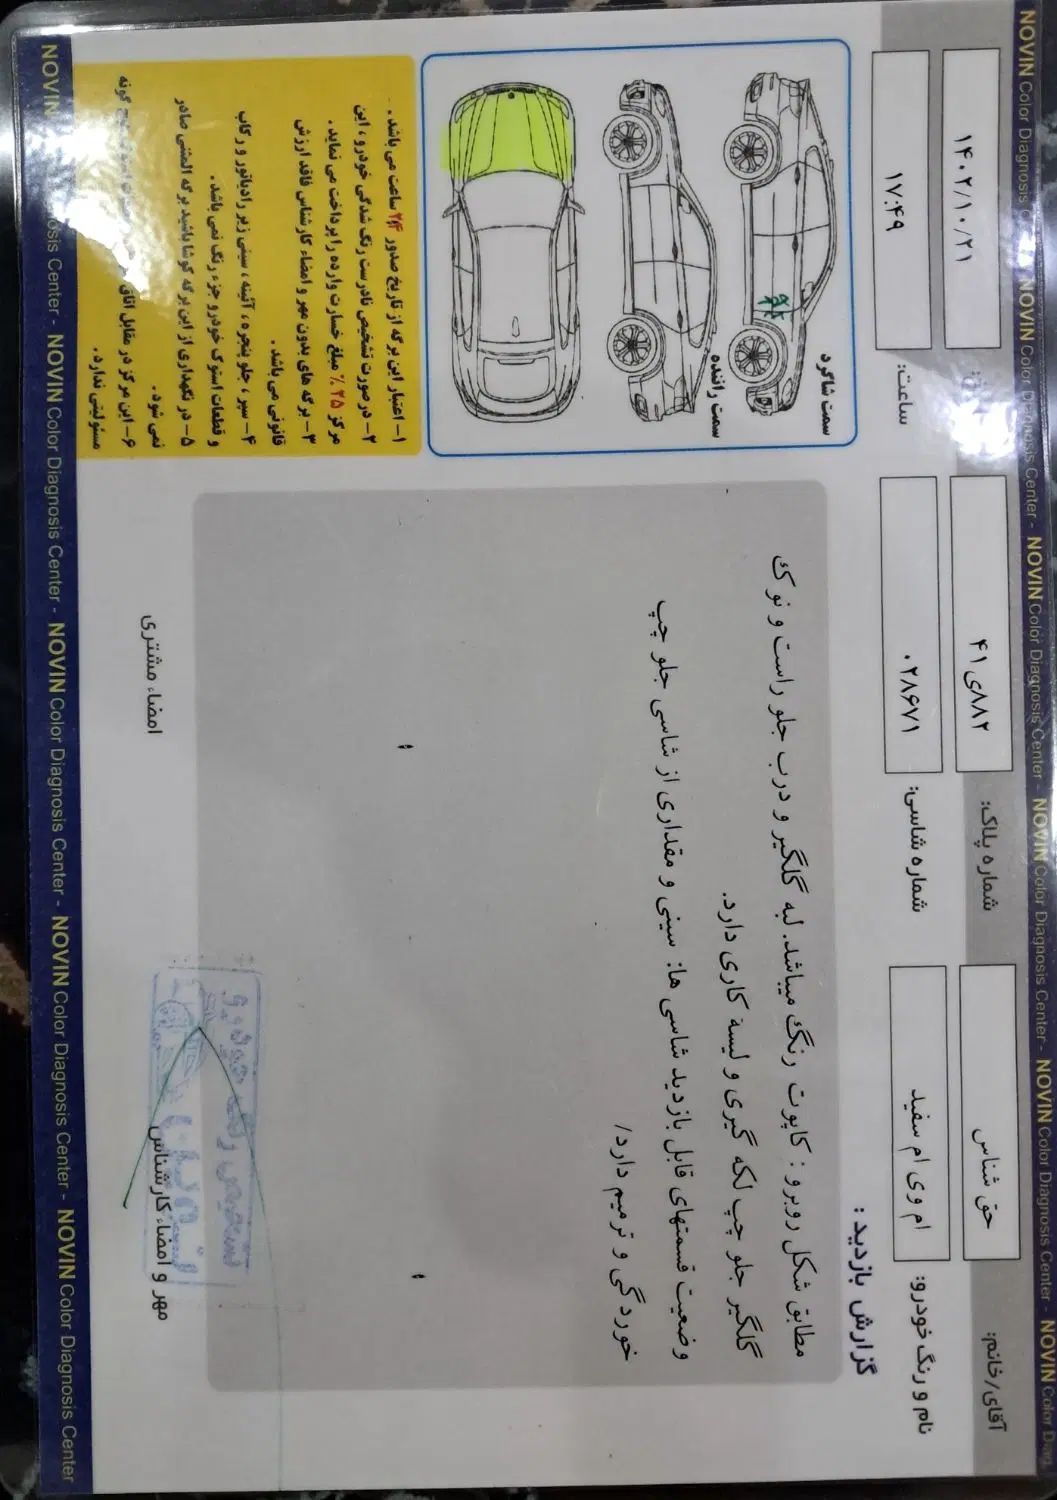 NOVIN Color Diagnosis Center - NOVIN Color Diagnosis Center - NOVIN Color Diagnosis Center - NOVIN Color Diagnosis Center - NOVIN Color Diagnosis Center
آقای/خانم: حق شناس
شماره پلاک: ۸۸۲ی۴۱
۱۴۰۲/۱۰/۲۱
نام و رنگ خودرو: ام وی ام سفید
شماره شاسی: ۰۲۸۶۷۱
ساعت: ۱۷:۴۹
گزارش بازدید:
مطابق شکل روبرو: کاپوت رنگ میباشد. لبه گلگیر و درب جلو راست و نوک
گلگیر جلو چپ لکه گیری و لیسه کاری دارد.
وضعیت قسمتهای قابل بازدید شاسی ها: سینی و مقداری از شاسی جلو چپ
خوردگی و ترمیم دارد/
سمت شاگرد
سمت راننده
۱- اعتبار این برگه از تاریخ صدور ۲۴ ساعت می باشد.
۲- در صورت تشخیص نادرست رنگ شدگی خودرو، این
مرکز ۲۵٪ مبلغ خسارت وارده را پرداخت می نماید.
۳- برگه های بدون مهر و امضاء کارشناس فاقد ارزش
قانونی می باشد.
۴- سپر، جلو پنجره، آئینه، سینی زیر رادیاتور و رکاب
و قطعات استوک خودرو جزء رنگ نمی باشد.
۵- در نگهداری از این برگه کوشا باشید برگه المثنی صادر
نمی شود.
۶- این مرکز در مقابل اتاق گونه
مسئولیتی ندارد.
مهر و امضاء کارشناس
امضاء مشتری
NOVIN Color Diagnosis Center - NOVIN Color Diagnosis Center - NOVIN Color Diagnosis Center - NOVIN Color Diagnosis Center - NOVIN Color Diagnosis Center